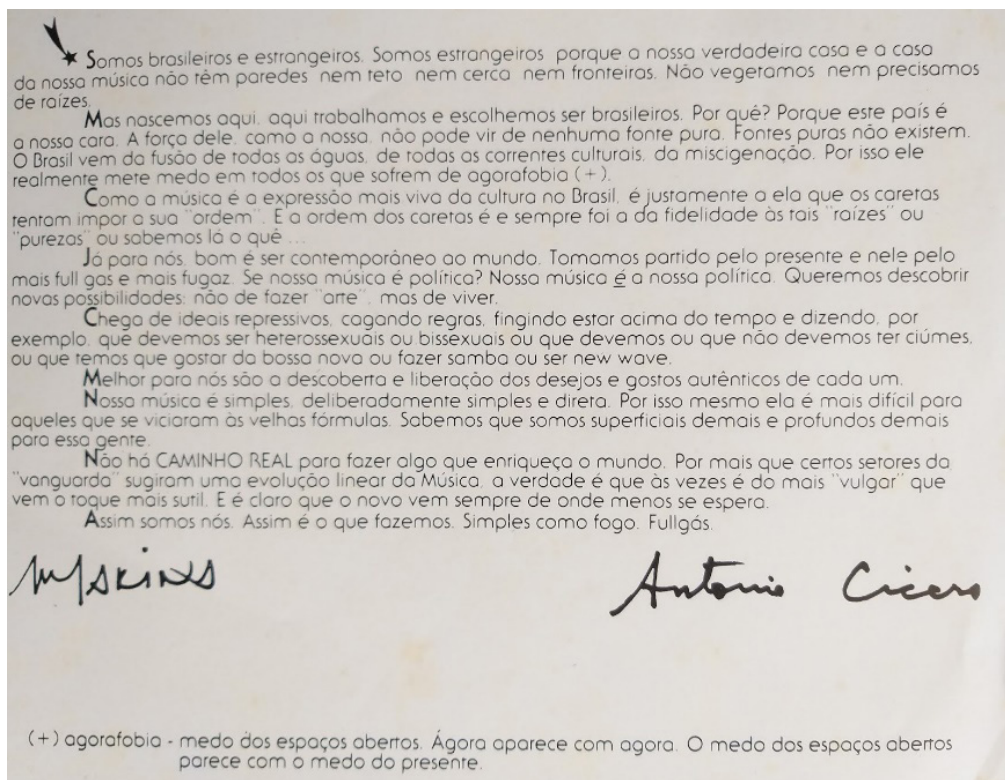 Somos brasileiros e estrangeiros. Somos estrangeiros porque a nossa verdadeira casa e a casa
da nossa música não têm paredes nem teto nem cerca nem fronteiras. Não vegetamos nem precisamos
de raízes.
Mas nascemos aqui, aqui trabalhamos e escolhemos ser brasileiros. Por quê? Porque este país é
a nossa cara. A força dele, como a nossa, não pode vir de nenhuma fonte pura. Fontes puras não existem.
O Brasil vem da fusão de todas as águas, de todas as correntes culturais, da miscigenação. Por isso ele
realmente mete medo em todos os que sofrem de agorafobia (+).
Como a música é a expressão mais viva da cultura no Brasil, é justamente a ela que os caretas
tentam impor a sua "ordem". E a ordem dos caretas é e sempre foi a da fidelidade às tais "raízes" ou
"purezas" ou sabemos lá o quê ...
Já para nós, bom é ser contemporâneo ao mundo. Tomamos partido pelo presente e nele pelo
mais full gas e mais fugaz. Se nossa música é política? Nossa música é a nossa política. Queremos descobrir
novas possibilidades: não de fazer "arte", mas de viver.
Chega de ideais repressivos, cagando regras, fingindo estar acima do tempo e dizendo, por
exemplo, que devemos ser heterossexuais ou bissexuais ou que devemos ou que não devemos ter ciúmes,
ou que temos que gostar da bossa nova ou fazer samba ou ser new wave.
Melhor para nós são a descoberta e liberação dos desejos e gostos autênticos de cada um.
Nossa música é simples, deliberadamente simples e direta. Por isso mesmo ela é mais difícil para
aqueles que se viciaram às velhas fórmulas. Sabemos que somos superficiais demais e profundos demais
para essa gente.
Não há CAMINHO REAL para fazer algo que enriqueça o mundo. Por mais que certos setores da
"vanguarda" sugiram uma evolução linear da Música, a verdade é que às vezes é do mais "vulgar" que
vem o toque mais sutil. E é claro que o novo vem sempre de onde menos se espera.
Assim somos nós. Assim é o que fazemos. Simples como fogo. Fullgás.
Antonio Cicero
(+) agorafobia - medo dos espaços abertos. Ágora aparece com agora. O medo dos espaços abertos
parece com o medo do presente.